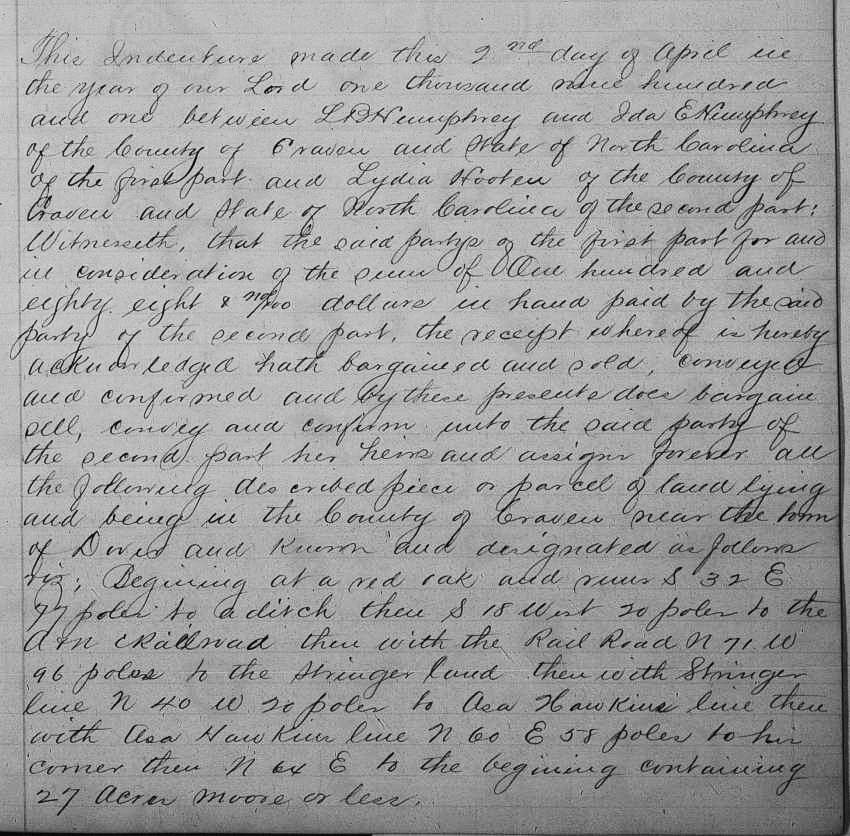 This Indenture made this 2nd day of April in
the year of our Lord one thousand nine hundred
and one between L B Humphrey and Ida E Humphrey
of the County of Craven and State of North Carolina
of the first part and Lydia Wooten of the County of
Craven and State of North Carolina of the second part:
Witnesseth, that the said partys of the first part for and
in consideration of the sum of One hundred and
eighty eight & no/100 dollars in hand paid by the said
party of the second part, the receipt whereof is hereby
acknowledged hath bargained and sold, conveyed
and confirmed and by these presents does bargain
sell, convey and confirm unto the said party of
the second part her heirs and assigns forever all
the following described piece or parcel of land lying
and being in the County of Craven near the town
of Dover and known and designated as follows
viz; Begining at a red oak and runs S 32 E
77 poles to a ditch then S 18 West 20 poles to the
Railroad then with the Rail Road N 71 W
96 poles to the Stringer land then with Stringer
line N 40 W 20 poles to Asa Hawkins line then
with Asa Hawkins line N 60 E 58 poles to his
corner then N 64 E to the begining containing
27 Acres moore or less.